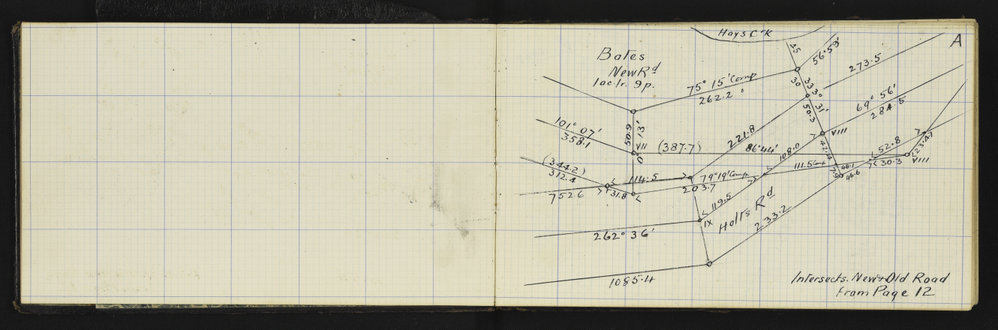 A
Hays Ck
Bates
New Rd
1ac 1r. 9p.
45
56°53'
273.5
75° 15' Comp
262.2
30
333° 31'
69° 56'
284.5
50.3
101° 07'
358.1
50.9
13'
VII
0°
(387.7)
221.8
86°44'
108.0
VIII
42.4
52.8
(23.4)
30.3
VIII
(344.2)
312.4
114.5
79°19' Comp
111.5 Comp
46.6
752.6
31.8
203.7
119.5
IX
Holts Rd
233.2
262° 36'
1085.4
Intersects. New & Old Road
from Page 12